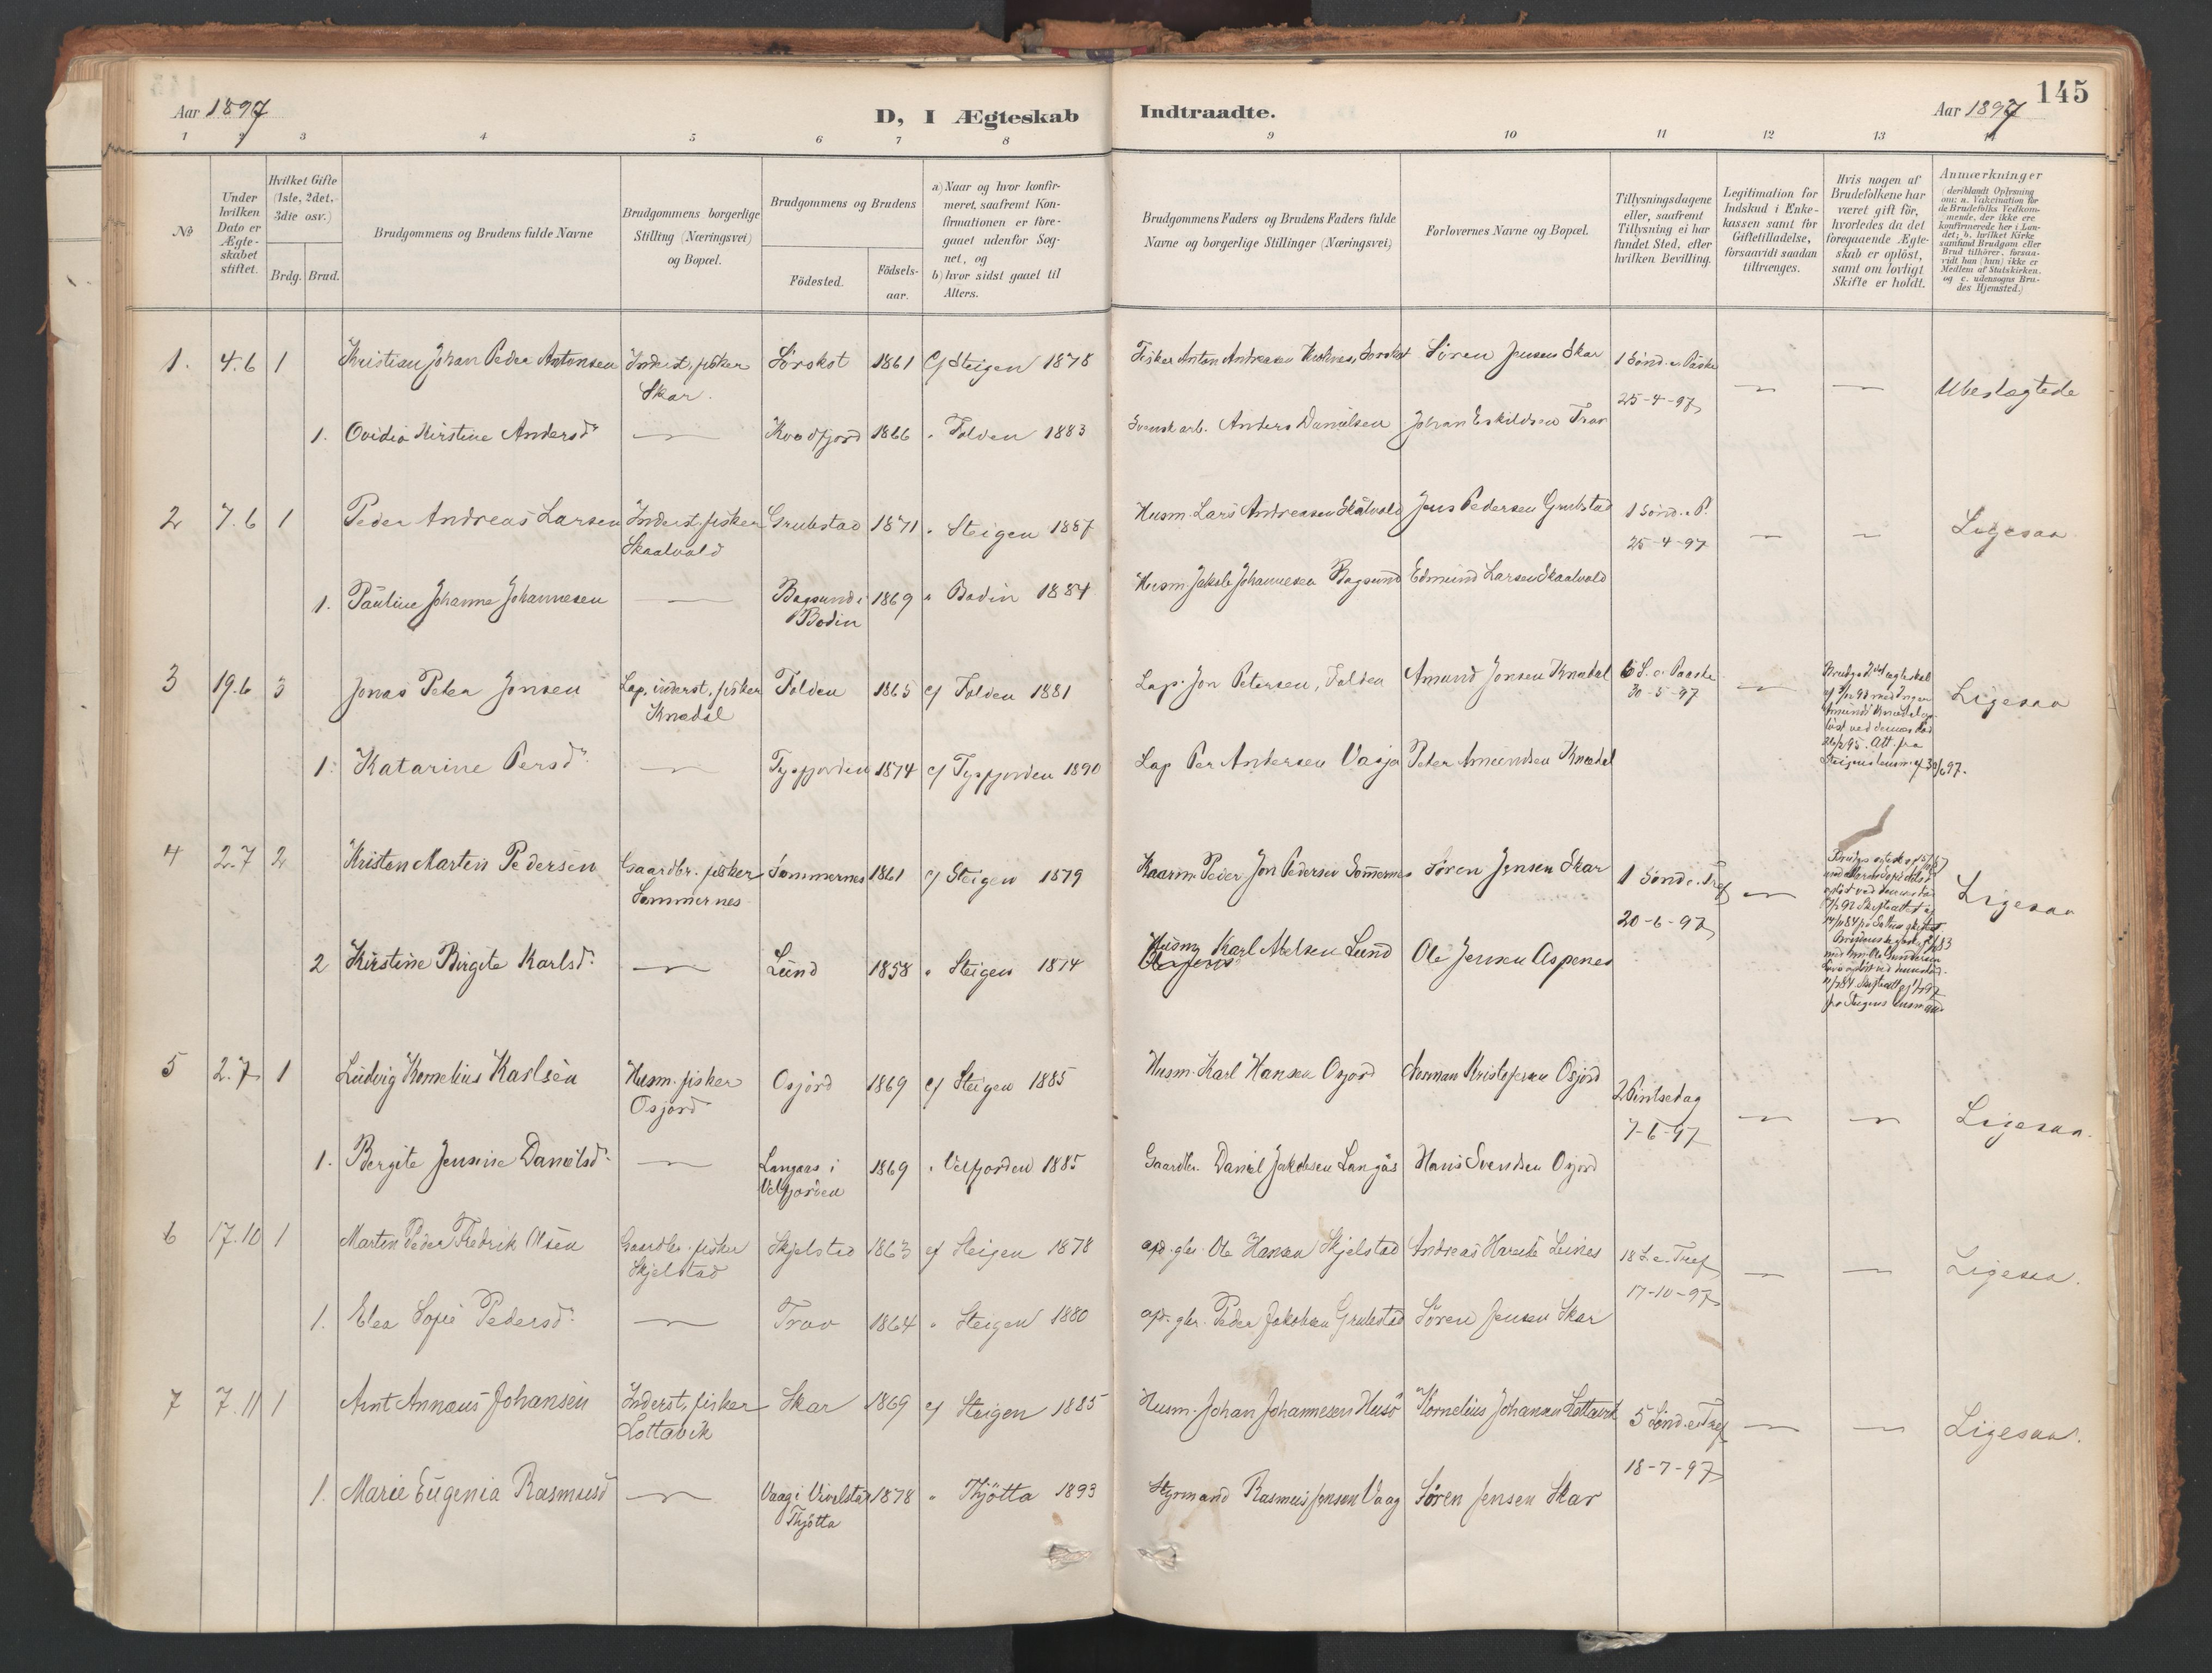 145
Aar 1897
D, I Ægteskab
Indtraadte.
Aar 1897
1 2 3 4 5 6 7 8 9 10 11 12 13 14
№
Under hvilken Dato er Ægteskabet stiftet.
Hvilket Gifte (1ste, 2det, 3die osv.)
Brdg. Brud.
Brudgommens og Brudens fulde Navne
Brudgommens borgerlige Stilling (Næringsvei) og Bopæl.
Brudgommens og Brudens
Födested.
Födsels-aar.
a) Naar og hvor konfirmeret, saafremt Konfirmationen er foregaaet udenfor Sognet, og
b) hvor sidst gaaet til Alters.
Brudgommens Faders og Brudens Faders fulde Navne og borgerlige Stillinger (Næringsvei)
Forlovernes Navne og Bopæl.
Tillysningsdagene eller, saafremt Tillysning ei har fundet Sted, efter hvilken Bevilling.
Legitimation for Indskud i Enkekassen samt for Giftetilladelse, forsaavidt saadan tiltrænges.
Hvis nogen af Brudefolkene har været gift för, hvorledes da det foregaaende Ægteskab er oplöst, samt om lovligt Skifte er holdt.
Anmærkninger (deriblandt Oplysning om: a. Vakcination for de Brudefolks Vedkommende, der ikke ere konfirmerede her i Landet; b. hvilket Kirkesamfund Brudgom eller Brud tilhörer, forsaavidt han (hun) ikke er Medlem af Statskirken, og c. udensogns Brudes Hjemsted.)
1. 4.6 1 Kristian Johan Peder Antonsen Inderst, fisker Skar. Sörskot 1861 c/ Steigen 1878 Fisker Anton Andreasen Sörskot Sören Jensen Skar 1 Sönd. e. Påske 25-4-97 Ubeslægtede
1. Ovidia Kirstine Andersd. Kvædfjord 1866 " Folden 1883 Svensk arb. Anders Danielsen Johan Eskildsen Trav
2 7.6 1 Peder Andreas Larsen Inderst. fisker Skaalvold Grubstad 1871 " Steigen 1887 Husm. Lars Andreasen Skålvold Jens Pedersen Grubstad 1 Sönd. e. P. 25-4-97 Ligesaa
1. Pauline Johanne Johannesen Bagsund i Bodin 1869 " Bodin 1884 Husm. Jakob Johannesen Bagsund Edmund Larsen Skaalvold
3 19.6 3 Jonas Peter Jonsen Lap, inderst, fisker Knædal Folden 1865 c/ Folden 1881 Lap Jon Petersen, Folden Amund Jonsen Knædal 6 S. e. Paaske 30-5-97 Ligesaa
1. Katarine Persd. Tysfjorden 1874 c/ Tysfjorden 1890 Lap Per Andersen Vasja Peter Amundsen Knædal
4 2.7 2 Kristen Martin Pedersen Gaardbr. fisker Sommernes Sommernes 1861 c/ Steigen 1879 Peder Jon Pedersen Sommernes Sören Jensen Skar 1 Sönd e. Tref 20-6-97 Ligesaa
2 Kirstine Birgite Karlsd. Lund 1858 " Steigen 1874 Husm Karl Abelsen Lund Ole Jensen Aspenes
5 2.7 1 Ludvig Kornelius Karlsen Husm. fisker Osjord Osjord 1869 c/ Steigen 1885 Husm. Karl Hansen Osjord Kristofersen Osjord 2 Pintsedag 7-6-97 Ligesaa.
1. Bergite Jensine Danielsd. Langaas i Velfjorden 1869 " Velfjorden 1885 Gaardbr. Daniel Jakobsen Langås Hans Svendsen Osjord
6 17.10 1 Martin Peder Fredrik Olsen Gaardbr. fisker Skjelstad Skjelstad 1863 c/ Steigen 1878 opd. gbr. Ole Hansen Skjelstad Andreas Leines 18 S. e. Tref 17-10-97 Ligesaa.
1. Elea Sofie Pedersd. Trav 1864 " Steigen 1880 opd. gbr. Peder Jakobsen Grubstad Sören Jensen Skar
7 7.11 1 Arnt Annæus Johansen Inderst, fisker Lottavik Skar 1869 c/ Steigen 1885 Husm. Johan Johannesen Husö Kornelius Johansen Lottavik 5 Sönd. e. Tref 18-7-97 Ligesaa.
1. Marie Eugenia Rasmusd Vaag i Thjötta 1878 " Thjötta 1893 Styrmand Rasmus Jensen Vaag Sören Jensen Skar